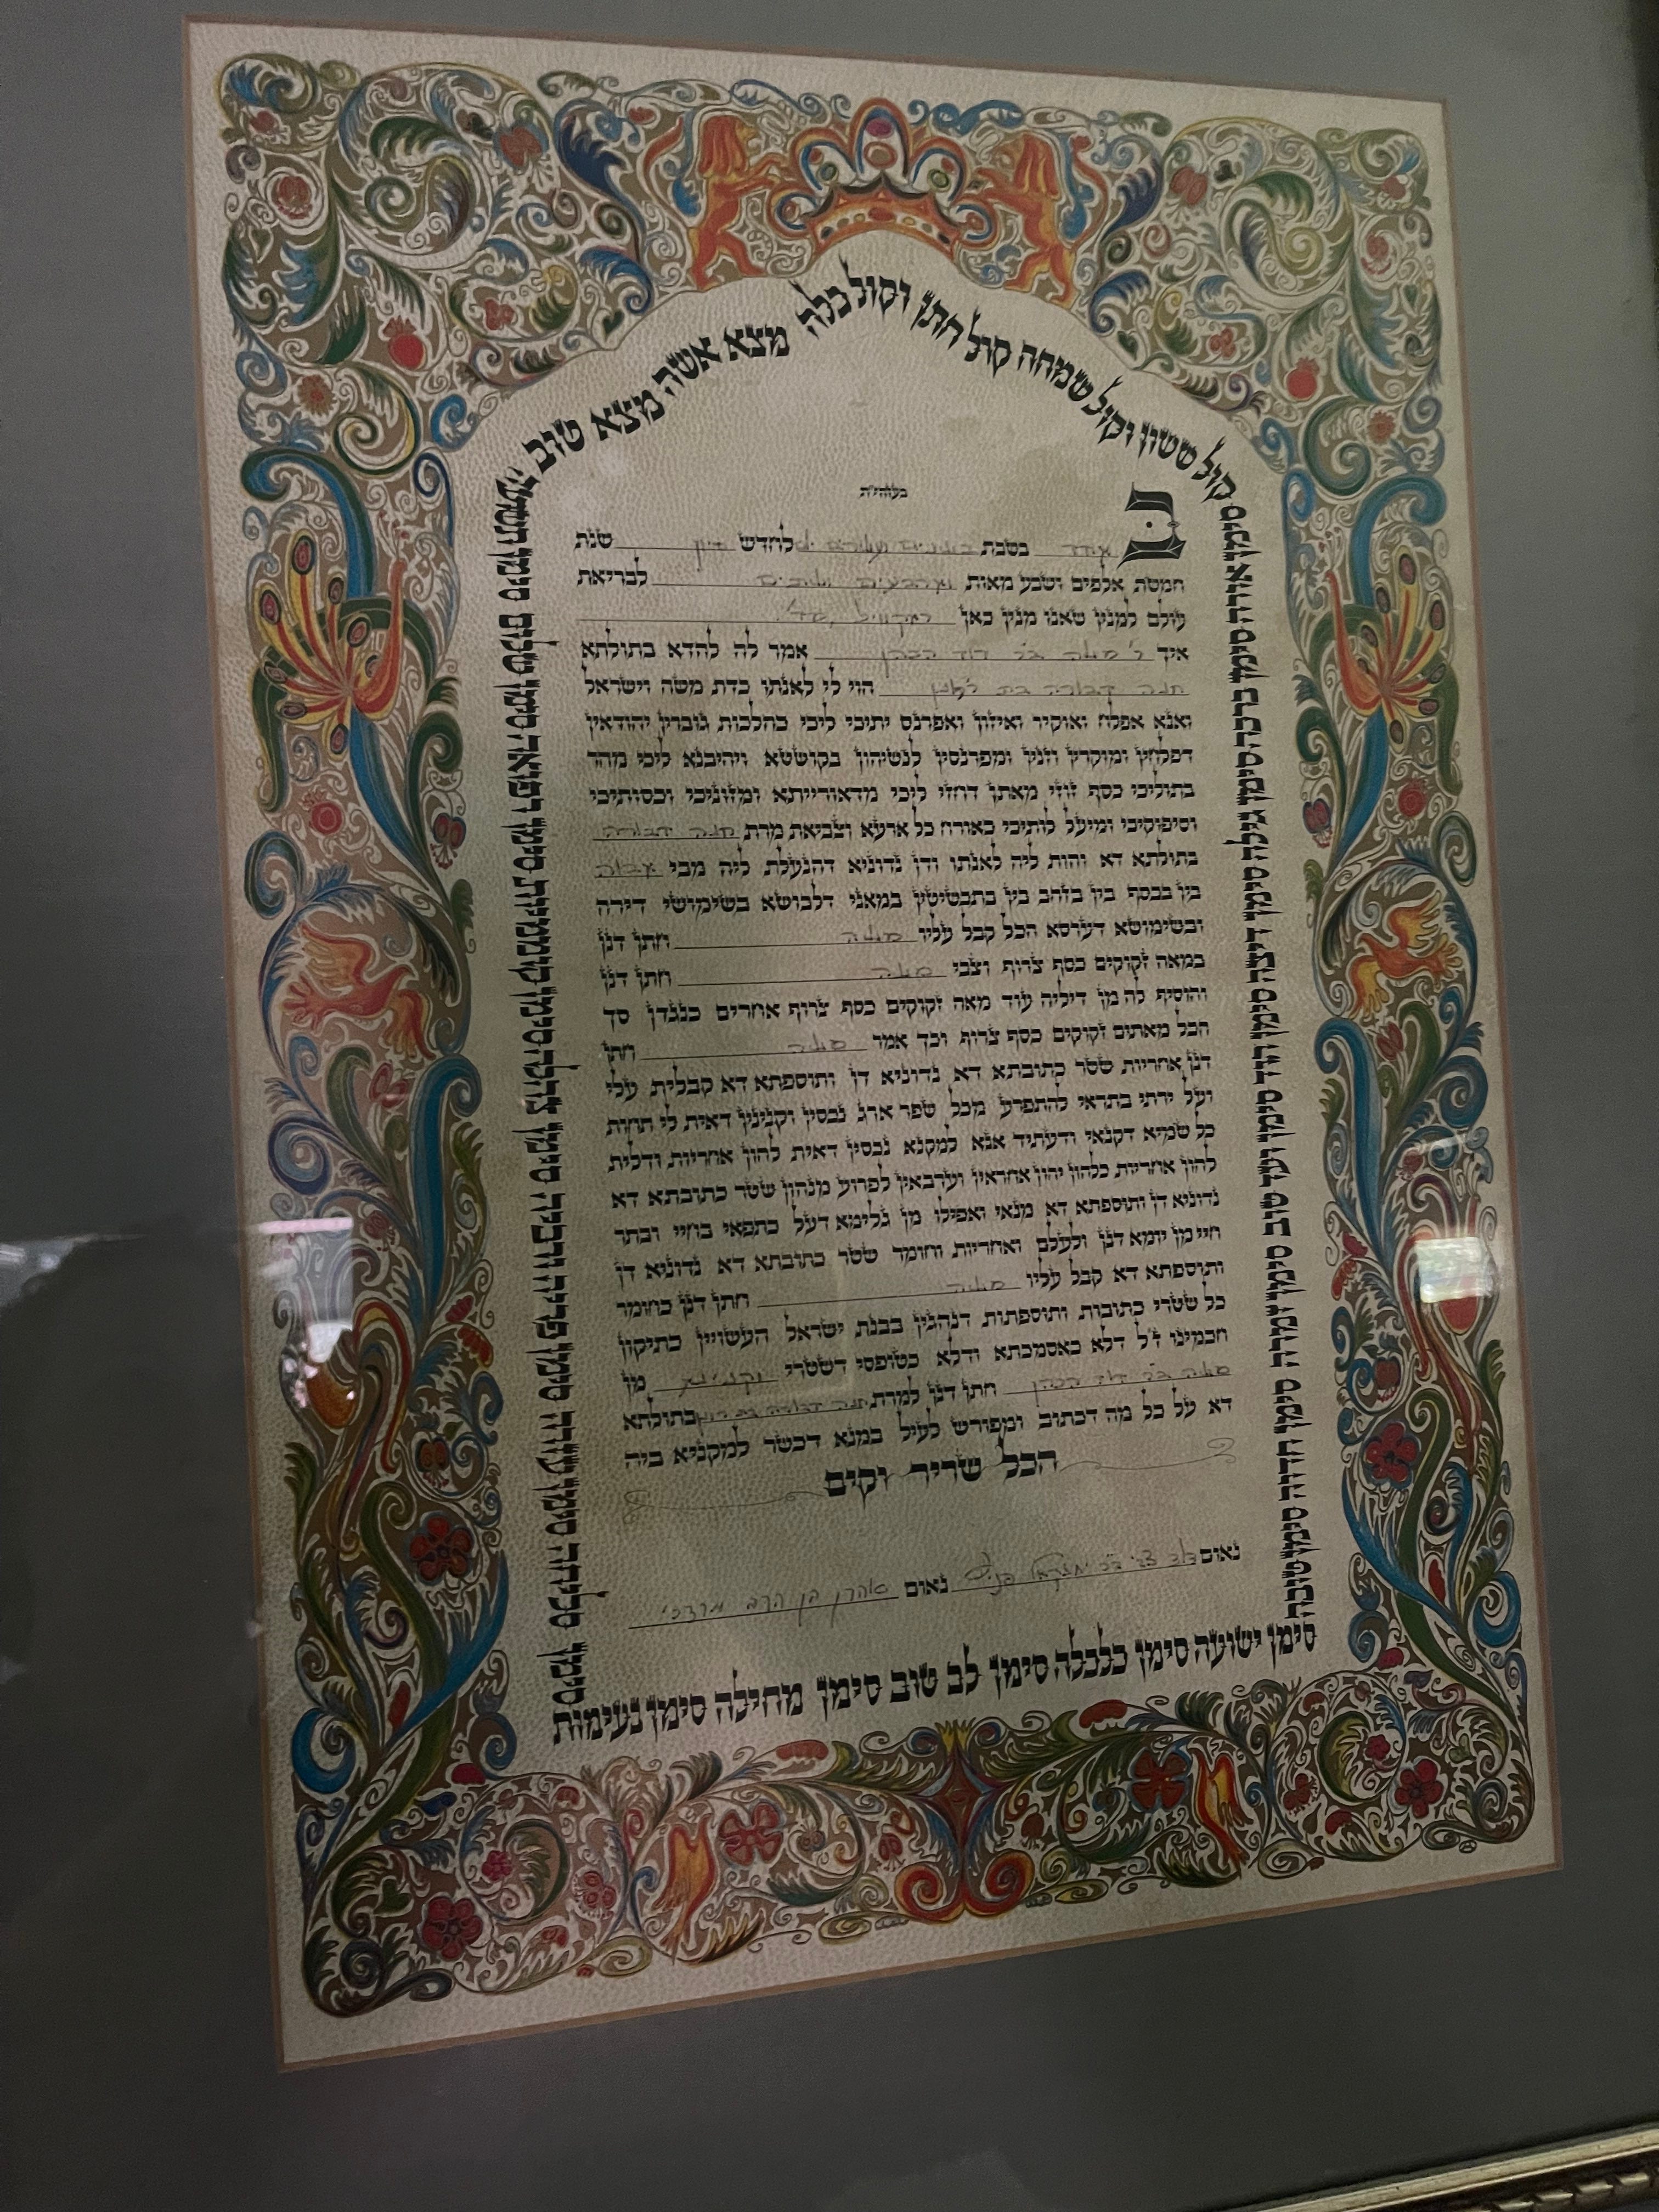 קול ששון וקול שמחה קול חתן וקול כלה מצא אשה מצא טוב
בעזהי״ת
ב אחד בשבת לחדש סיון שנת
חמשת אלפים ושבע מאות וארבעים לבריאת
עולם למנין שאנו מנין כאן
איך ר׳ משה ב״ר דוד הכהן אמר לה להדא בתולתא
חנה דבורה בת הוי לי לאנתו כדת משה וישראל
ואנא אפלח ואוקיר ואיזון ואפרנס יתיכי ליכי כהלכות גוברין יהודאין
דפלחין ומוקרין וזנין ומפרנסין לנשיהון בקושטא ויהיבנא ליכי מהר
בתוליכי כסף זוזי מאתן דחזי ליכי מדאורייתא ומזוניכי וכסותיכי
וסיפוקיכי ומיעל לותיכי כאורח כל ארעא וצביאת מרת חנה דבורה
בתולתא דא והות ליה לאנתו ודן נדוניא דהנעלת ליה מבי אבוה
בין בכסף בין בזהב בין בתכשיטין במאני דלבושא בשימושי דירה
ובשימושא דערסא הכל קבל עליו משה חתן דנן
במאה זקוקים כסף צרוף וצבי משה חתן דנן
והוסיף לה מן דיליה עוד מאה זקוקים כסף צרוף אחרים כנגדן סך
הכל מאתים זקוקים כסף צרוף וכך אמר משה חתן
דנן אחריות שטר כתובתא דא נדוניא דן ותוספתא דא קבלית עלי
ועל ירתי בתראי להתפרע מכל שפר ארג נכסין וקנינין דאית לי תחות
כל שמיא דקנאי ודעתיד אנא למקנא נכסין דאית להון אחריות ודלית
להון אחריות כלהון יהון אחראין וערבאין לפרוע מנהון שטר כתובתא דא
נדוניא דן ותוספתא דא מנאי ואפילו מן גלימא דעל כתפאי בחיי ובתר
חיי מן יומא דנן ולעלם ואחריות וחומר שטר כתובתא דא נדוניא דן
ותוספתא דא קבל עליו משה חתן דנן כחומר
כל שטרי כתובות ותוספתות דנהגין בבנת ישראל העשויין כתיקון
חכמינו ז״ל דלא כאסמכתא ודלא כטופסי דשטרי וקנינא מן
משה ב״ר דוד הכהן חתן דנן למרת חנה דבורה בת בתולתא
דא על כל מה דכתוב ומפורש לעיל במנא דכשר למקניא ביה
הכל שריר וקים
נאום דוב צבי ב״ר נאום אהרן בן הרב מרדכי
סימן אורה סימן ברכה סימן גילה סימן דיצה סימן הוד סימן ועד טוב סימן זמרה סימן חדוה סימן טובה
סימן ישועה סימן כלכלה סימן לב טוב סימן מחילה סימן נעימות
סימן סליחה סימן עזרה סימן פריה ורביה סימן צהלה סימן קוממיות סימן רפואה סימן שלום סימן